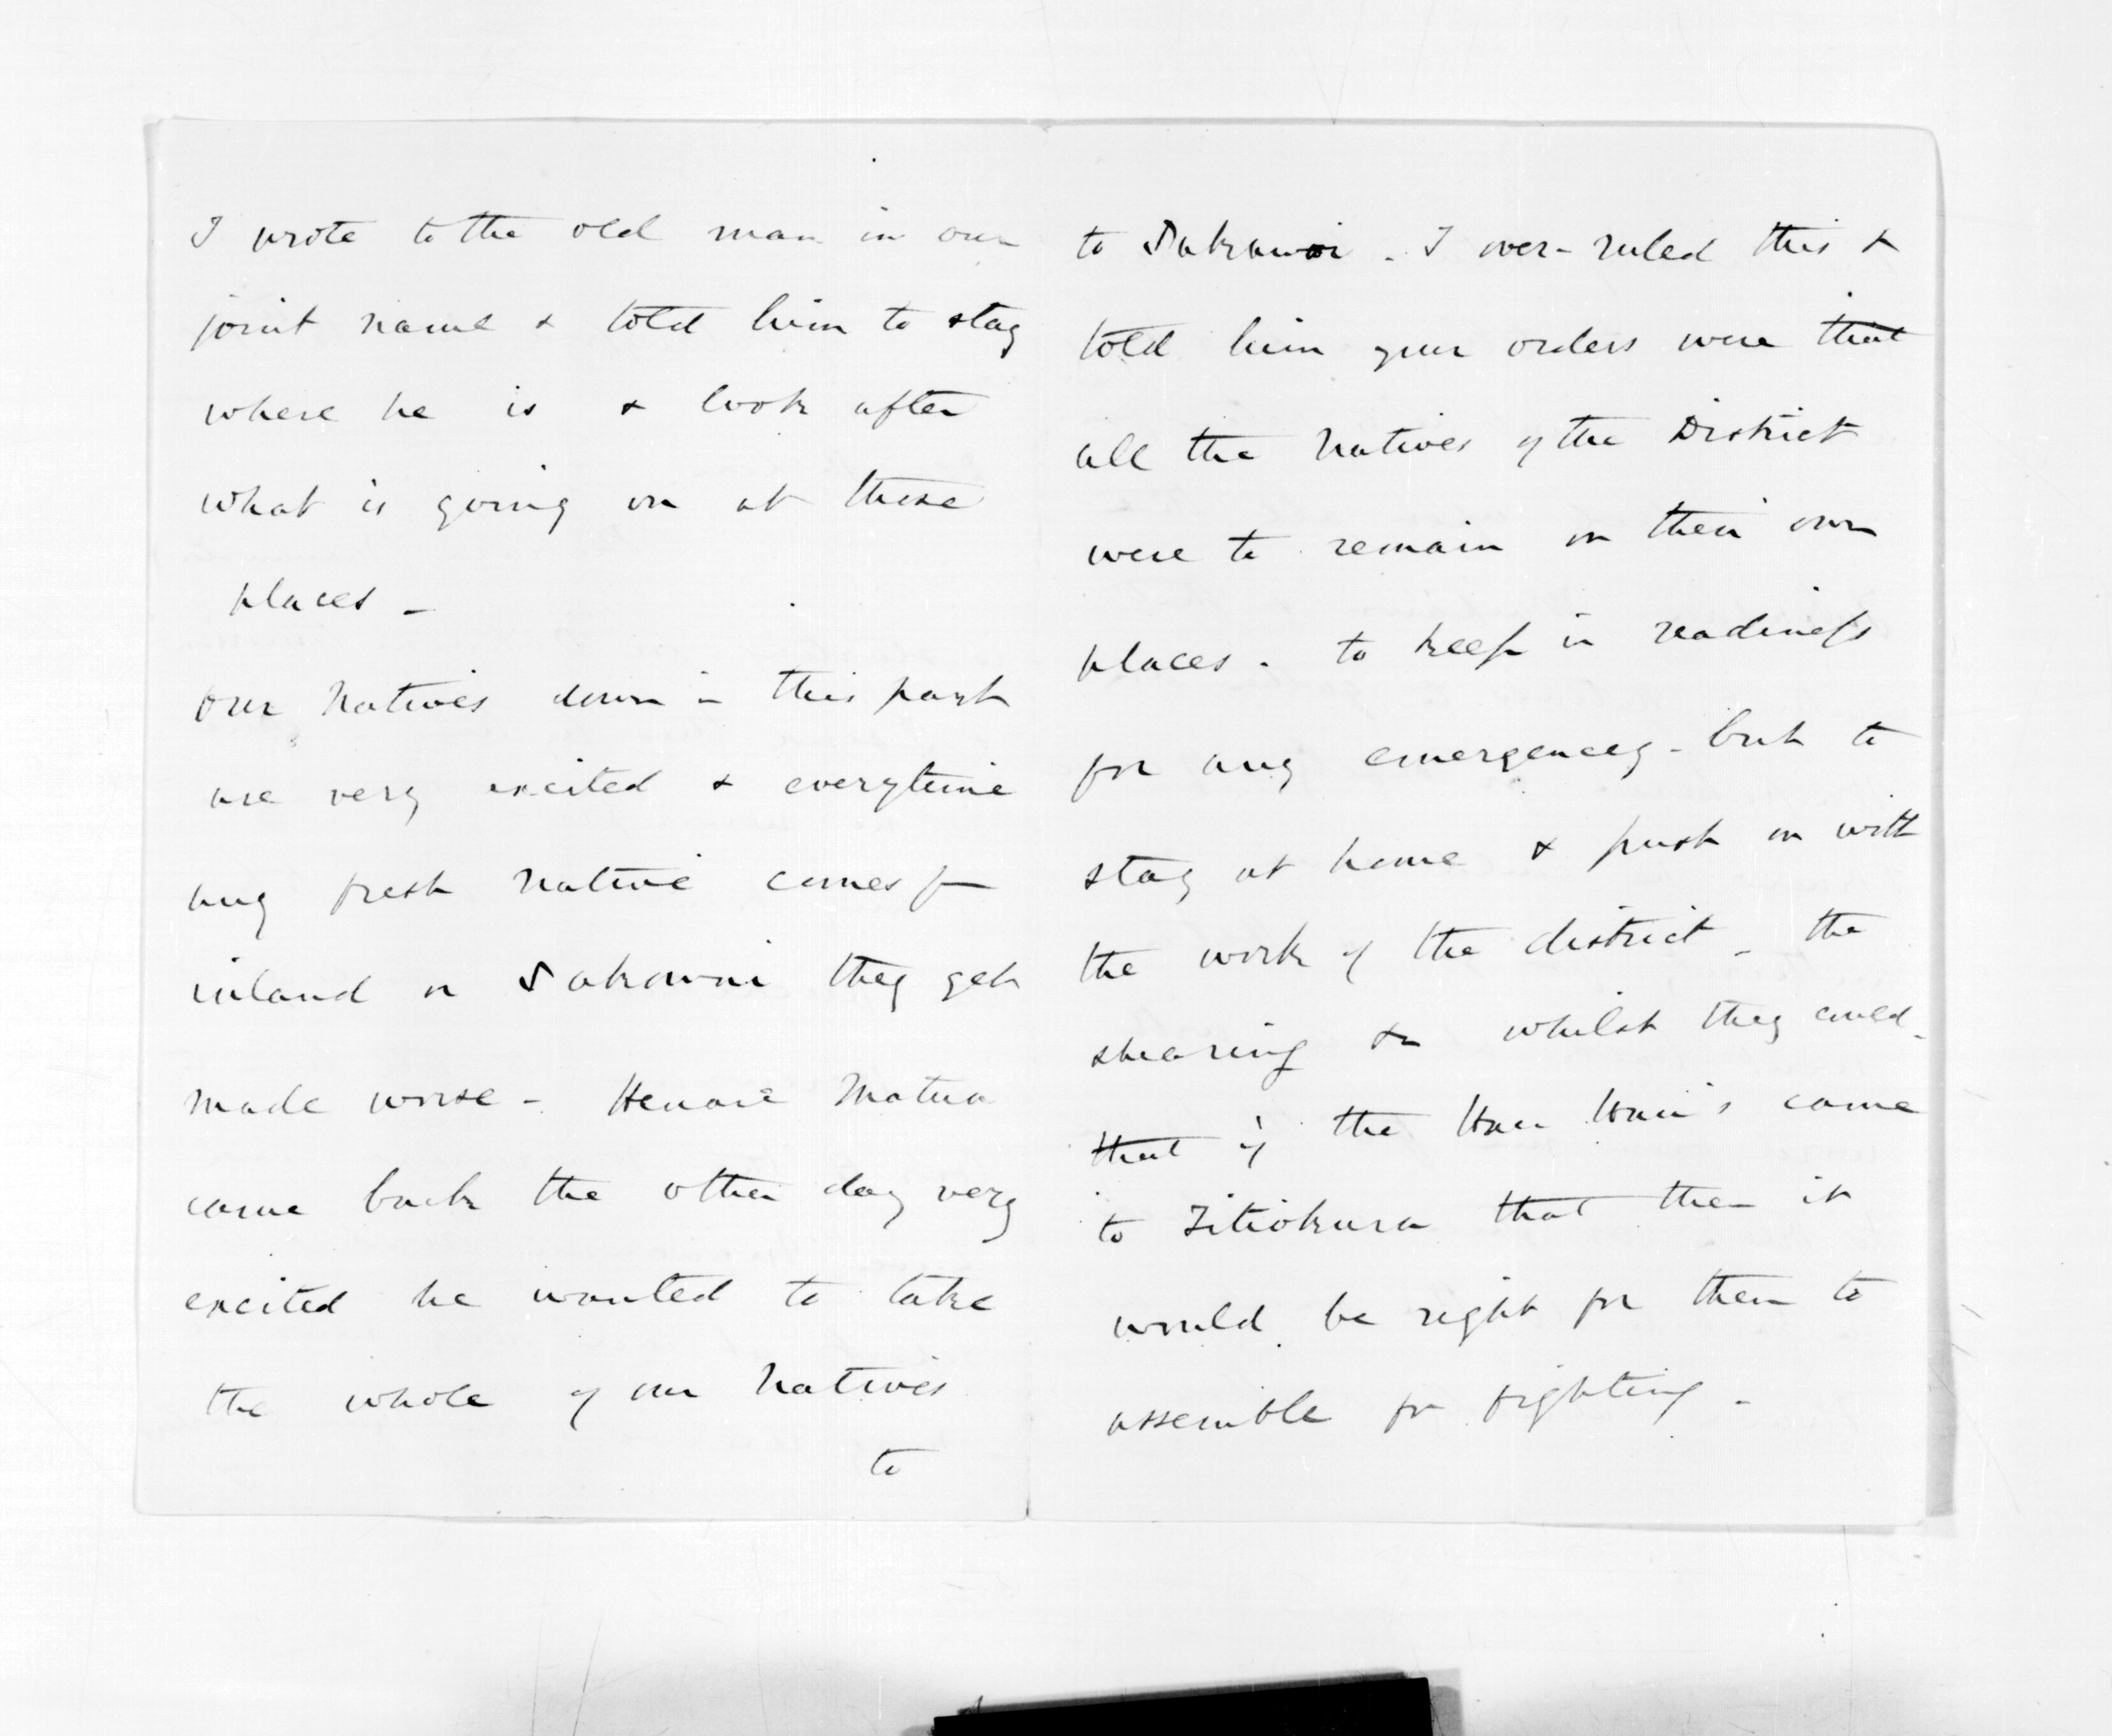 I wrote to the old man in our
joint name & told him to stay
where he is & look after
what is going on at those
places -
Our Natives down in this part
are very excited & everytime
any fresh native comes fm
inland or Pakowai they get
made worse - Henare Matua
came back the other day very
excited he wanted to take
the whole of our Natives
to
to Pakowai. I over-ruled this &
told him your orders were that
all the Natives of the District
were to remain on their own
places. to keep in readiness
for any emergency - but to
stay at home & push on with
the work of the district - the
shearing &c whilst they could -
that if the Hau Hau's came
to Titiokura that then it
would be right for them to
assemble for fighting -